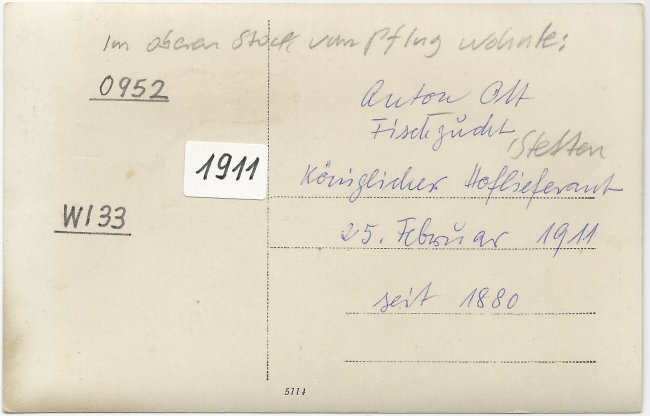 Im oberen Stock vom Pflug wohnte:
0952
Anton Ott
Fischzucht
Stetten
1911
Königlicher Hoflieferant
WI33
25. Februar 1911
seit 1880
5114